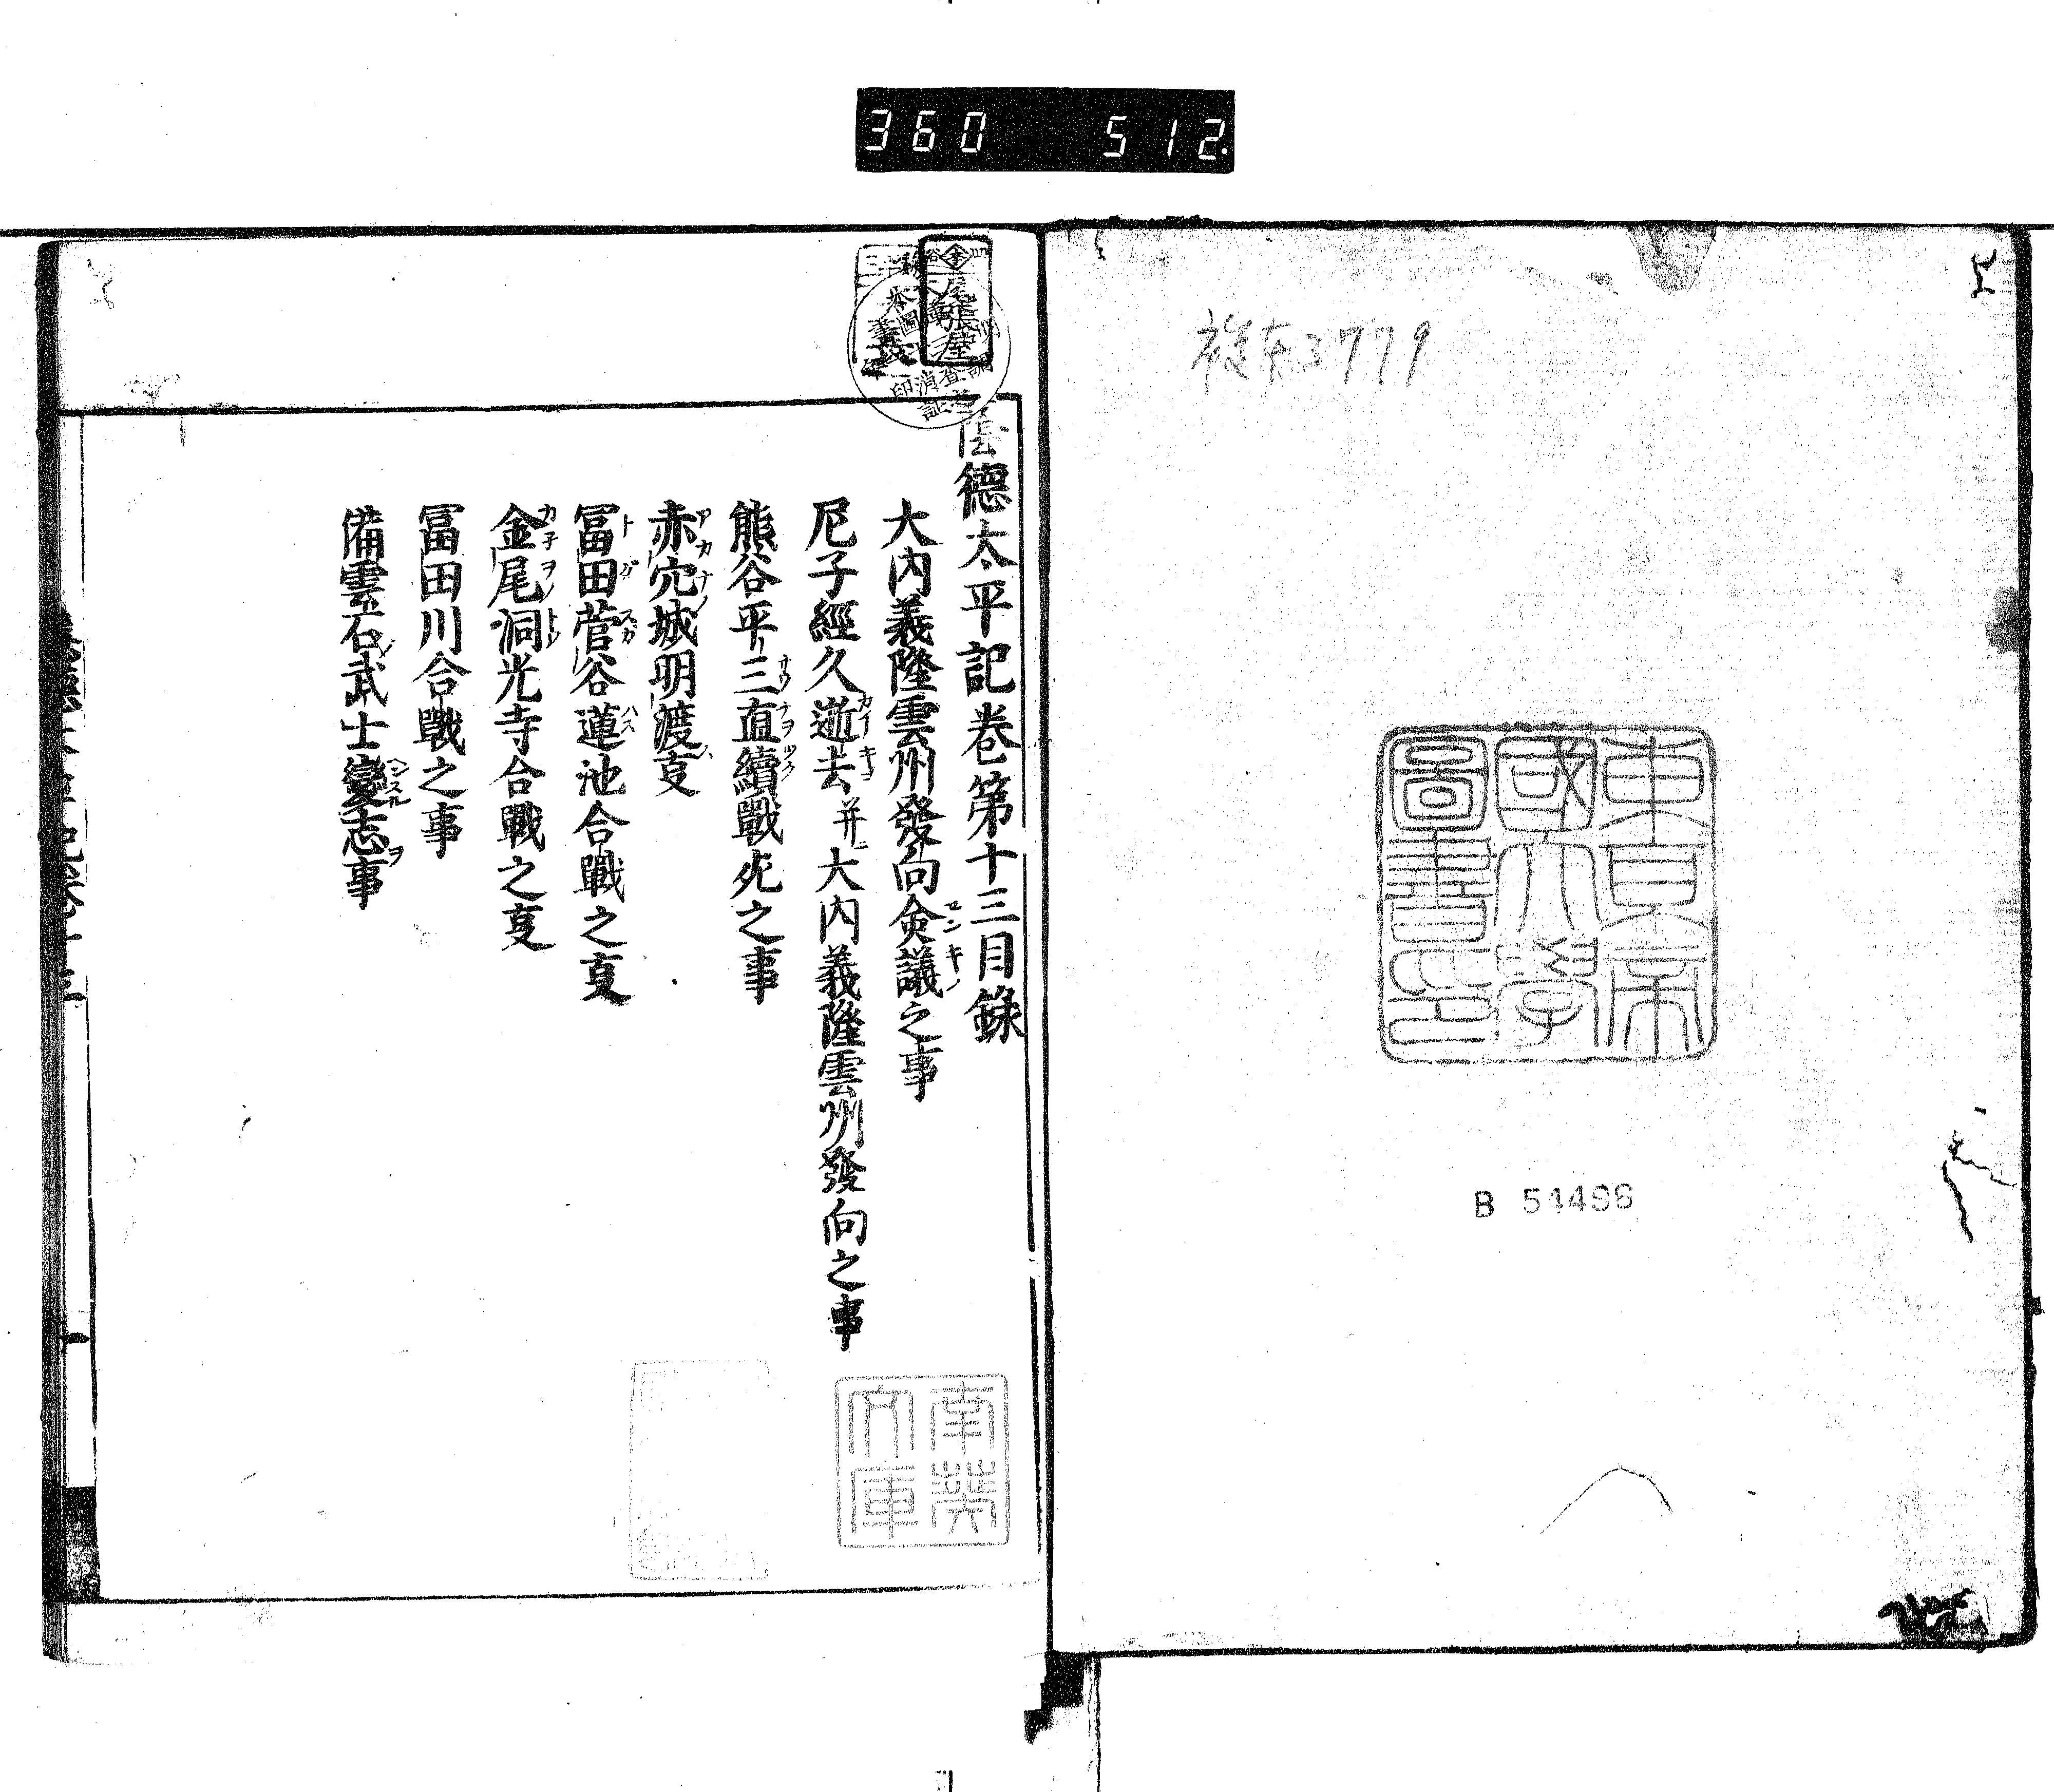 360 512
3779
東京帝
國大學
圖書印
B 54496
尾張屋
陰德太平記卷第十三目錄
大内義隆雲州發向僉議之事
尼子經久逝去并大内義隆雲州發向之事
熊谷平三直續戰死之事
赤穴城明渡㕝
冨田菅谷蓮池合戰之㕝
金尾洞光寺合戰之㕝
冨田川合戰之事
備雲石武士變志事
南葵
文庫